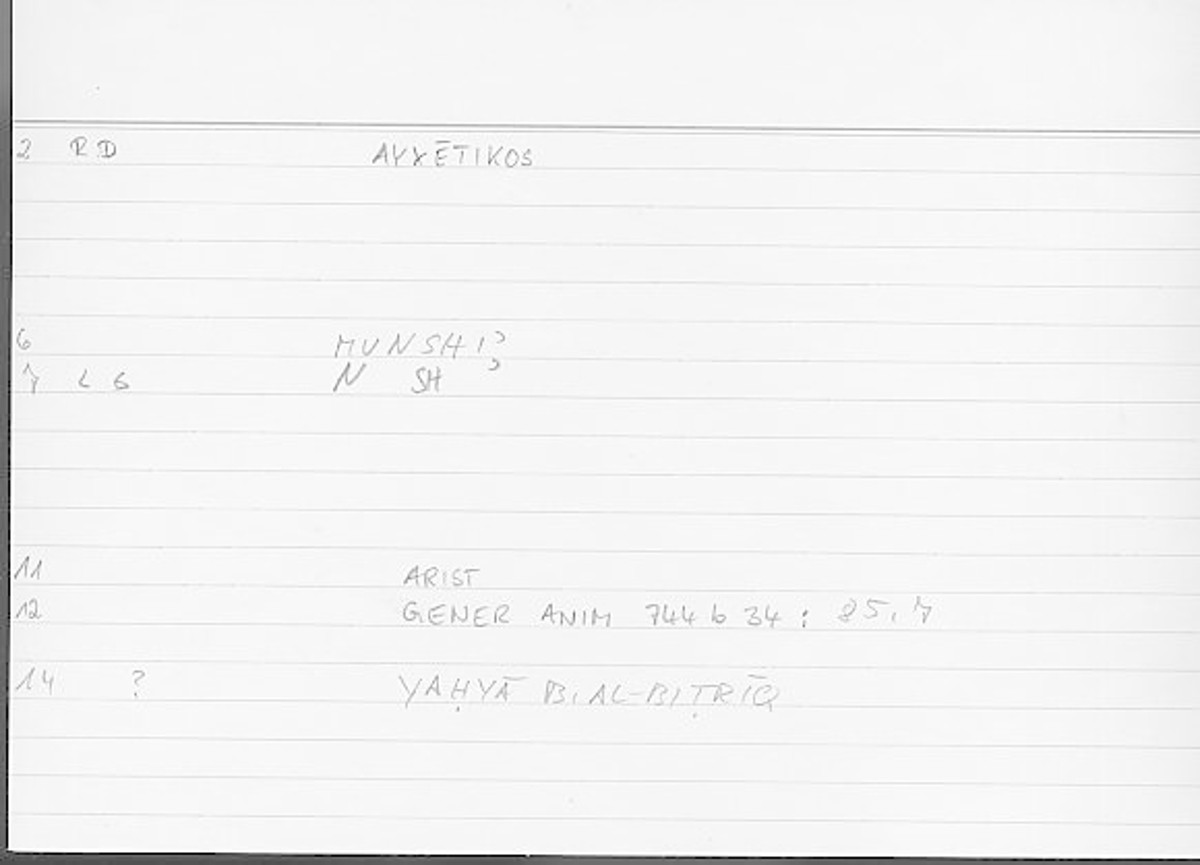 2 RD AYXĒTIKOS
6 MUNSHIʾ
7 L G N SH ʾ
11 ARIST
12 GENER ANIM 744 b 34 : 85,7
14 ? YAḤYĀ B. AL-BIṬRĪQ